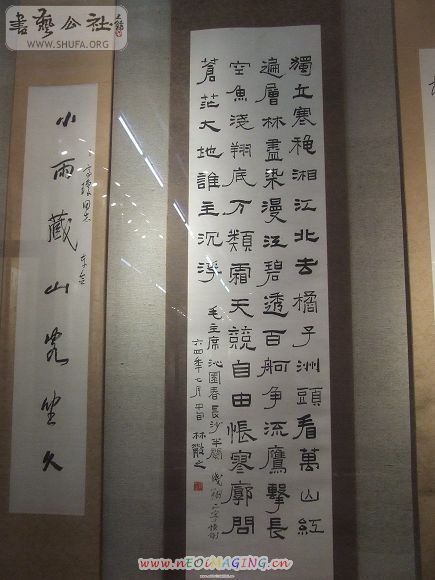 書藝公社
WWW.SHUFA.ORG
獨立寒穐湘江北去橘子洲頭看萬山紅
遍層林盡染漫江碧透百舸争流鷹擊長
空魚淺翔底万類霜天競自由悵寥廓問
蒼茫大地誰主沉浮
毛主席沁園春長沙半闋 淺翔二字
六四年七月中旬 林散之
小雨藏山客坐久
同志
www.nEOiMAGiNG.cn